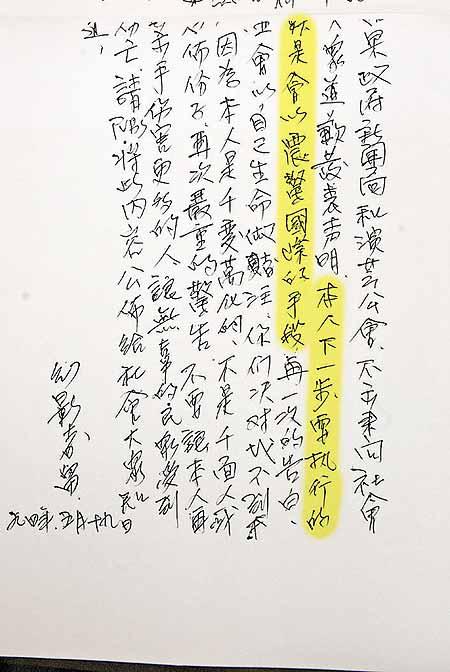 果政府新聞局和演芸公會、不主來向社會
眾道歉發表声明、本人下一步要执行的
就是會以震驚國際的手段、再一次的告白、
也會以自己生命做賭注、你们決对找不到本
因為本人是千变萬化的、不是千面人或
佈份子、再次嚴重的警告 不要讓本人再
手伤害更多的人讓無辜的民眾受到
伤亡、請將此內容公佈給社會大眾知
道，
幻影
九四年、五月十九日